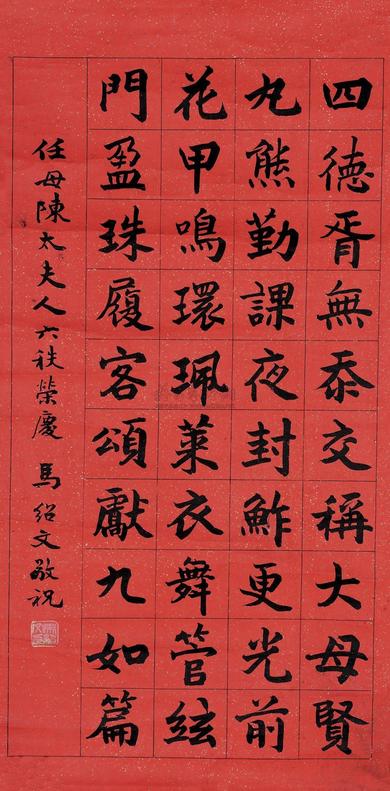 四德胥無忝交稱大母賢
丸熊勤課夜封鮓更光前
花甲鳴環珮萊衣舞管絃
門盈珠履客頌獻九如篇
任母陳太夫人六秩榮慶 馬紹文敬祝